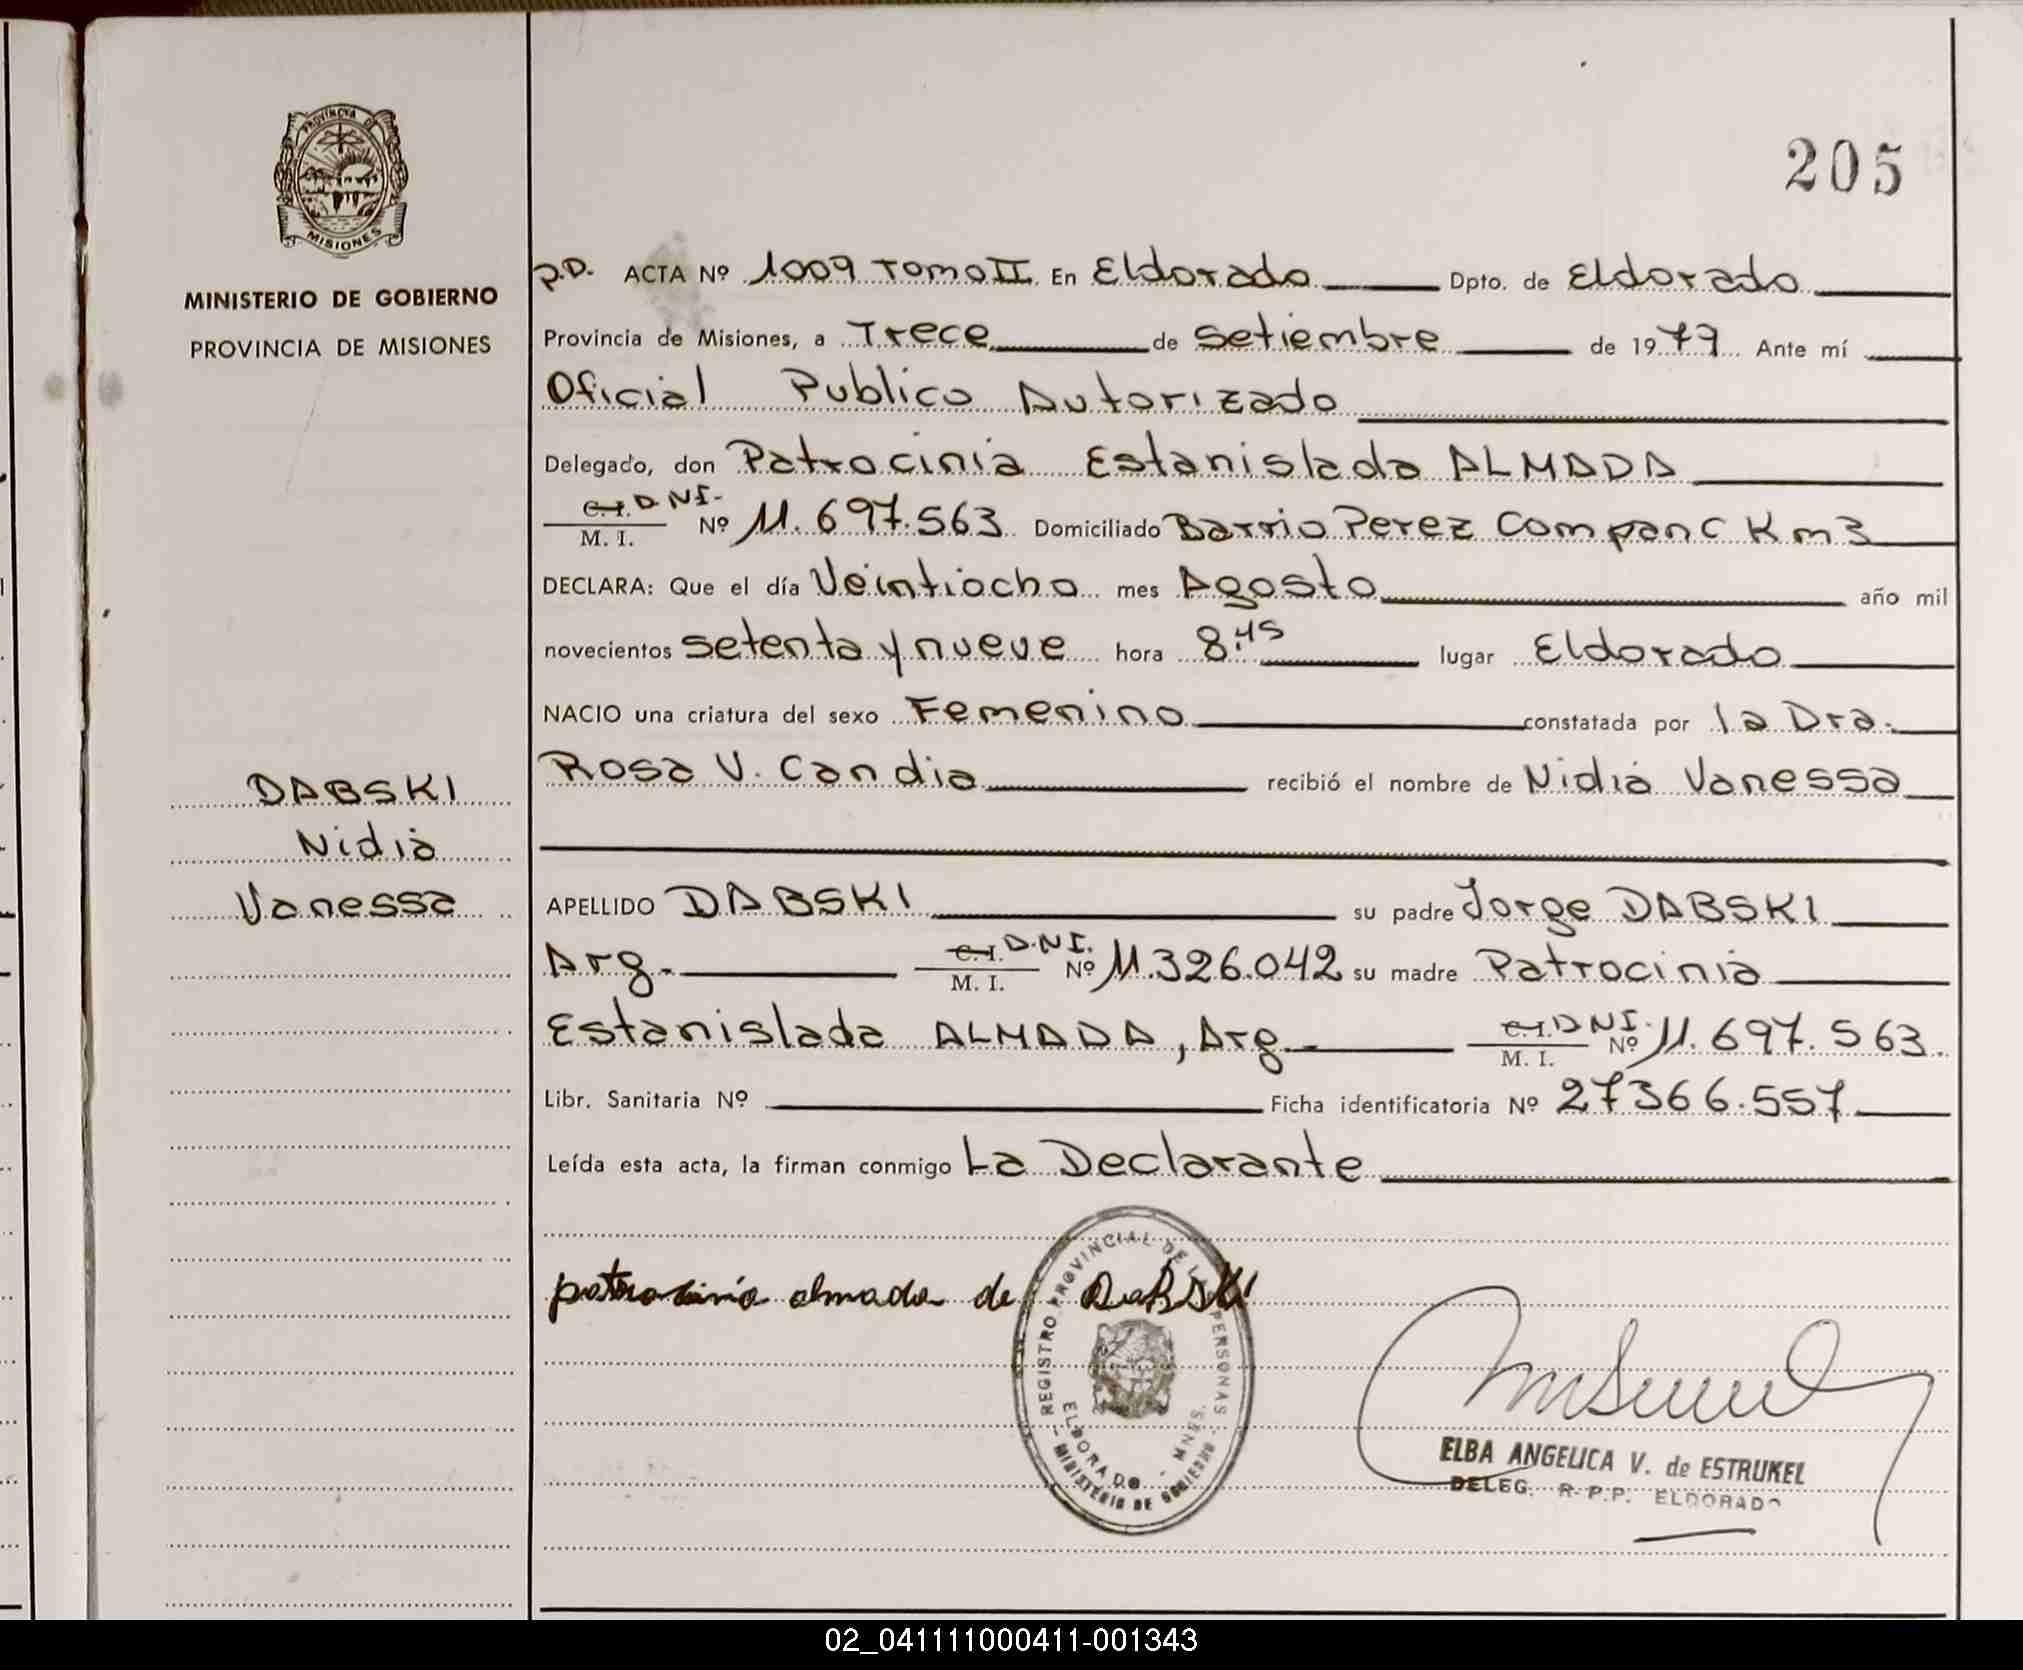 PROVINCIA DE
MISIONES
MINISTERIO DE GOBIERNO
PROVINCIA DE MISIONES
DABSKI
Nidia
Vanessa
205
P.D. ACTA Nº 1009 Tomo II En Eldorado Dpto. de Eldorado
Provincia de Misiones, a Trece de Setiembre de 1979 Ante mí
Oficial Publico Autorizado
Delegado, don Patrocinia Estanislada ALMADA
C.I. D.N.I.
M. I. Nº 11.697.563 Domiciliado Barrio Perez Companc Km3
DECLARA: Que el día Veintiocho mes Agosto año mil
novecientos setenta y nueve hora 8:45 lugar Eldorado
NACIO una criatura del sexo Femenino constatada por la Dra.
Rosa V. Candia recibió el nombre de Nidia Vanessa
APELLIDO DABSKI su padre Jorge DABSKI
Arg. C.I. D.N.I. M. I. Nº 11.326.042 su madre Patrocinia
Estanislada ALMADA, Arg. C.I. D.N.I. M. I. Nº 11.697.563.
Libr. Sanitaria Nº Ficha identificatoria Nº 27366.557
Leída esta acta, la firman conmigo La Declarante
patrocinia almada de DaBSKI
REGISTRO PROVINCIAL DE LAS PERSONAS
ELDORADO - MNES.
- MINISTERIO DE GOBIERNO -
ELBA ANGELICA V. de ESTRUKEL
DELEG. R.P.P. ELDORADO
02_041111000411-001343